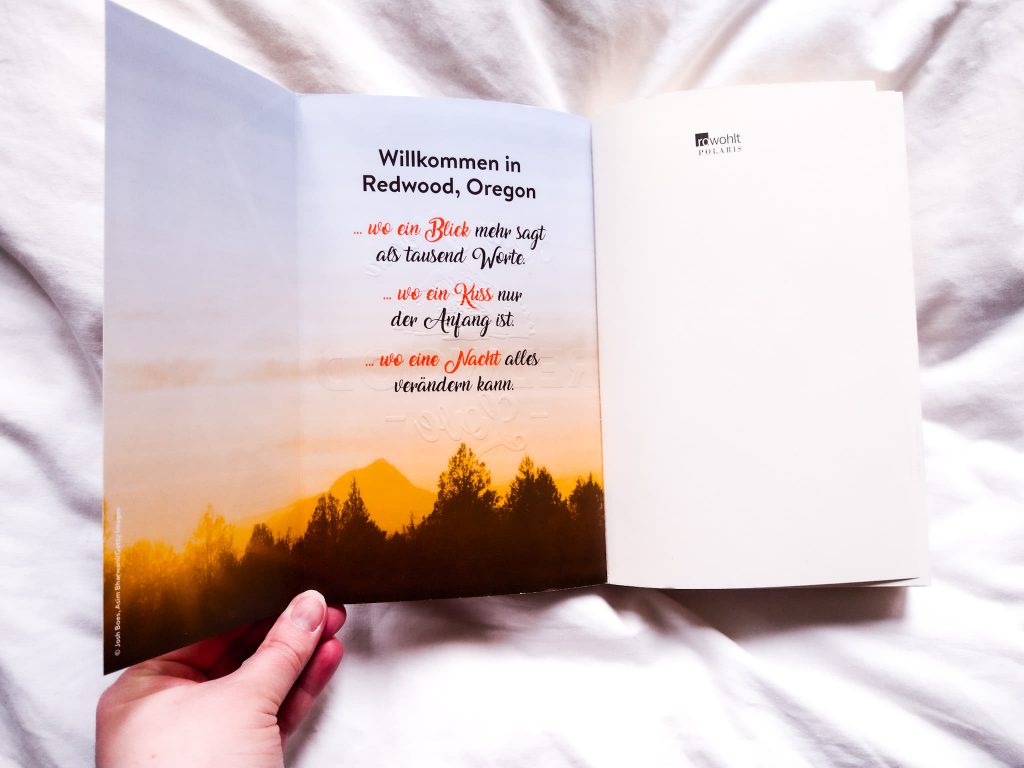 Willkommen in
Redwood, Oregon
... wo ein Blick mehr sagt
als tausend Worte.
... wo ein Kuss nur
der Anfang ist.
... wo eine Nacht alles
verändern kann.
rowohlt
POLARIS